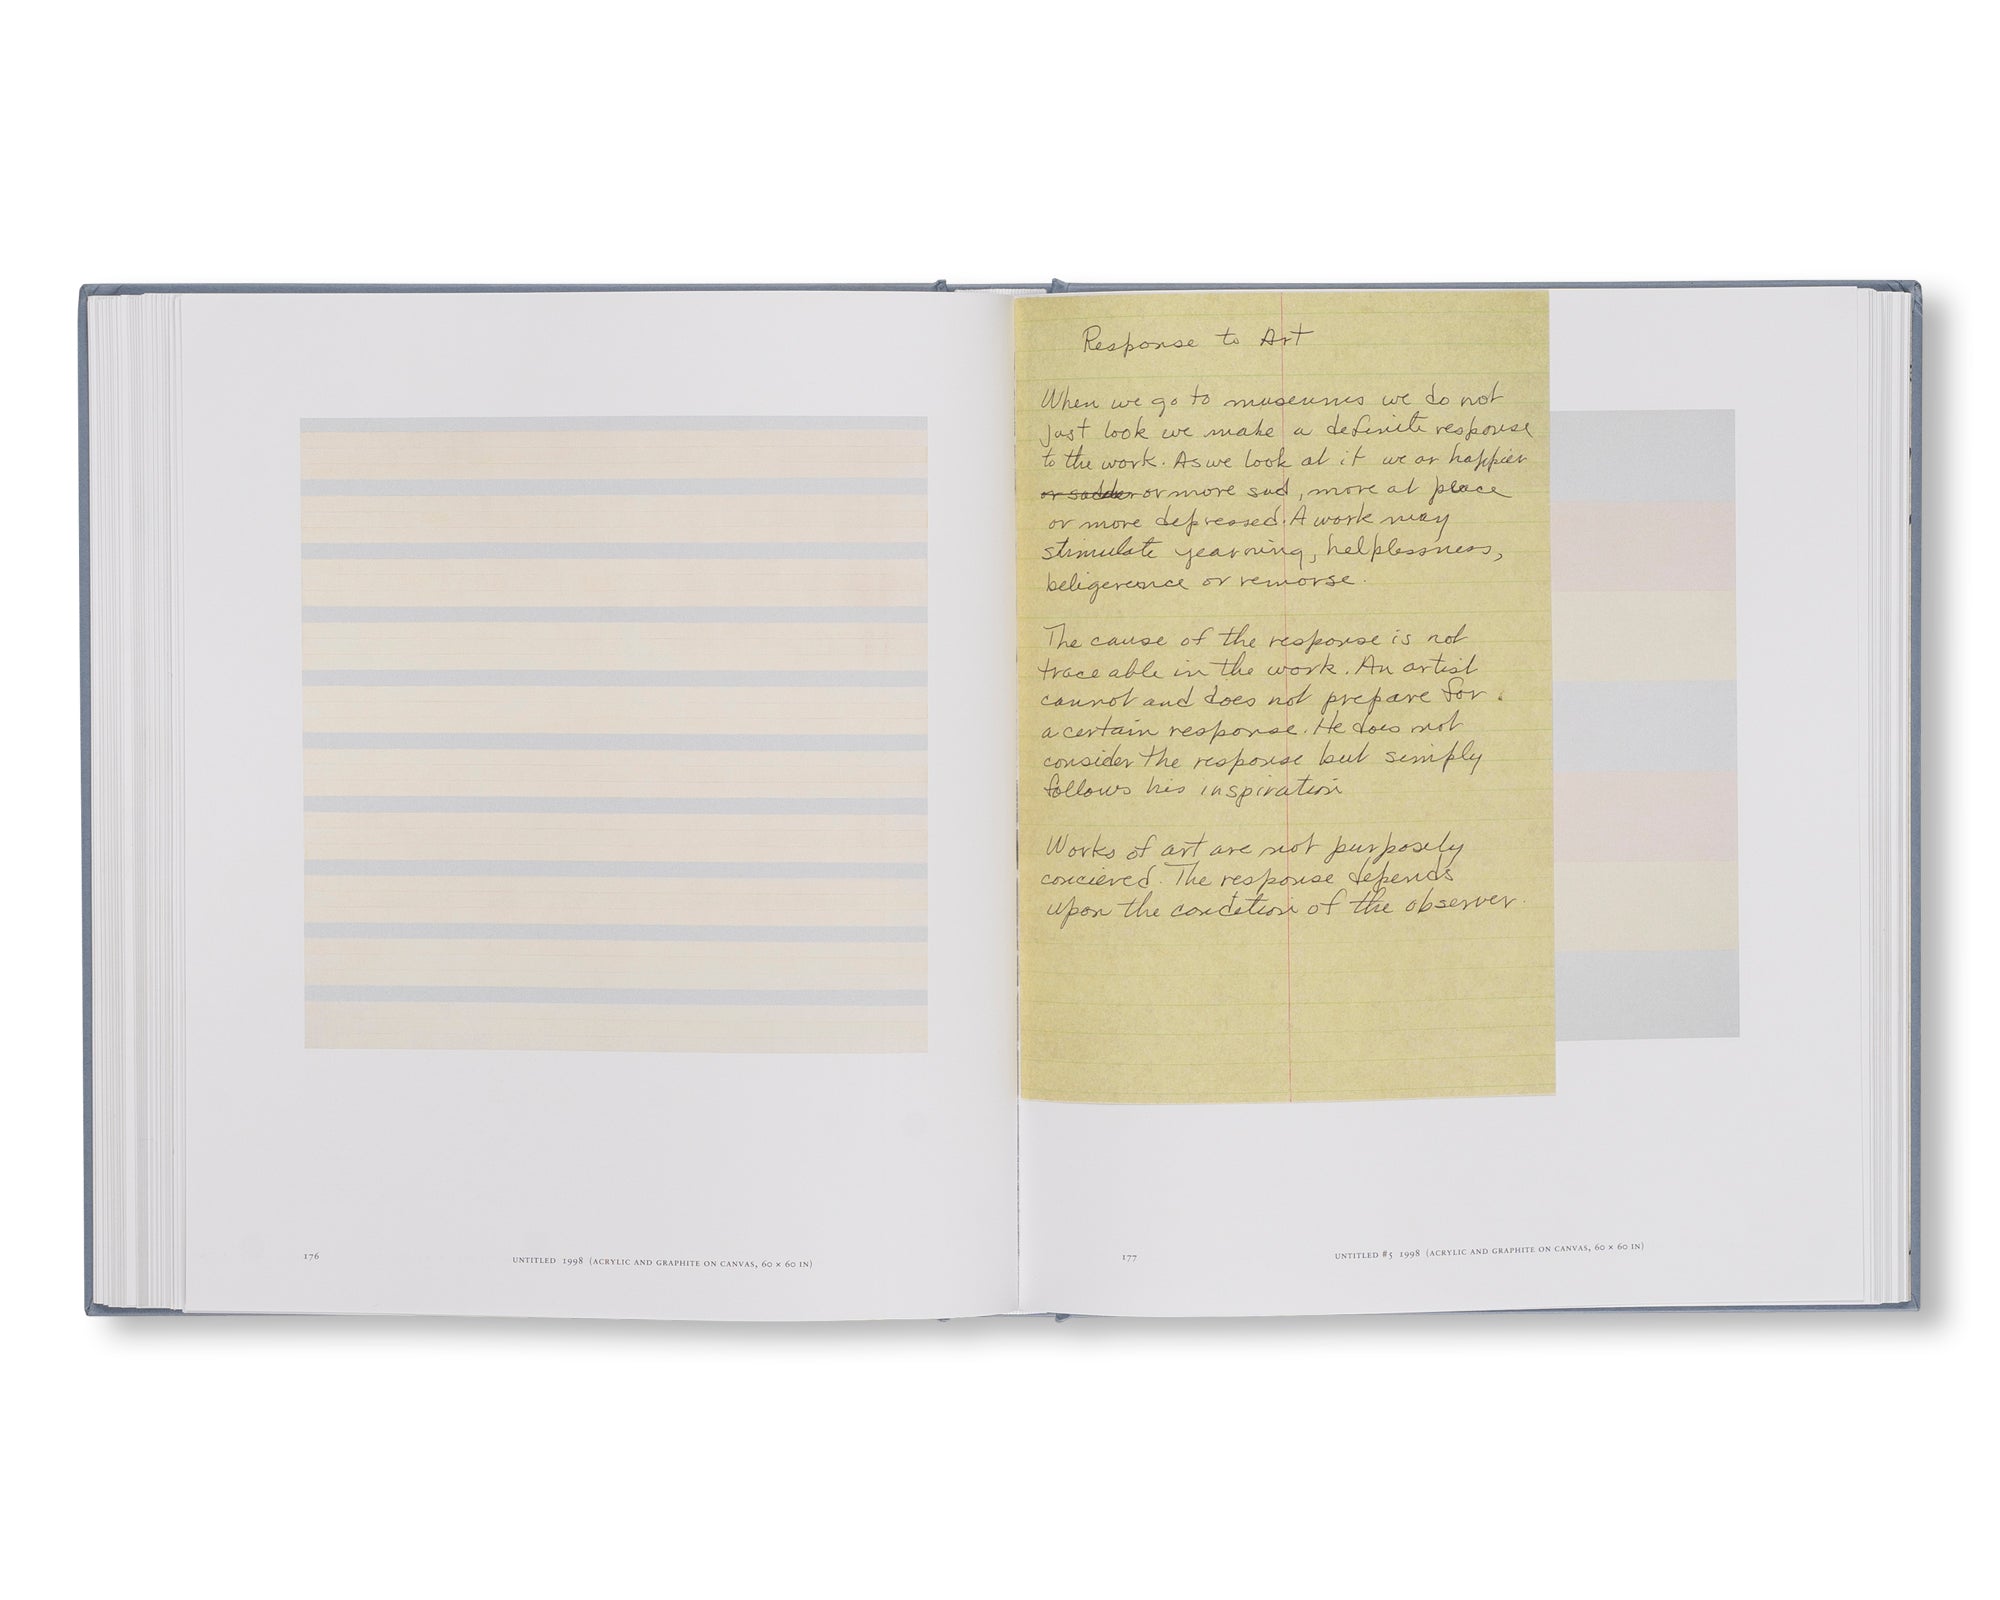 Response to Art
When we go to museums we do not
just look we make a definite response
to the work. As we look at it we ar happier
or sadder or more sad, more at peace
or more depressed. A work may
stimulate yearning, helplessness,
beligerence or remorse.
The cause of the response is not
traceable in the work. An artist
cannot and does not prepare for
a certain response. He does not
consider the response but simply
follows his inspiration
Works of art are not purposely
concieved. The response depends
upon the condition of the observer.
176
UNTITLED 1998 (ACRYLIC AND GRAPHITE ON CANVAS, 60 × 60 IN)
177
UNTITLED #5 1998 (ACRYLIC AND GRAPHITE ON CANVAS, 60 × 60 IN)